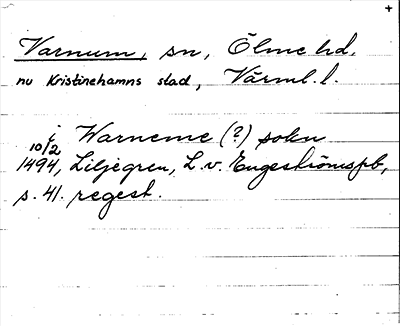 +
Varnum, sn, Ölme hd.
nu Kristinehamns stad, Värml. l.
i Warneme (?) sokn
10/2
1494, Liljegren, L. v. Engeströmspb,
s. 41. regest.